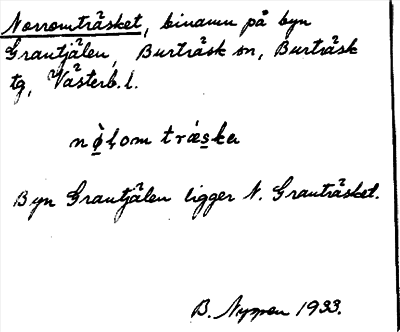 Norromträsket, binamn på byn
Grantjälen, Burträsk sn, Burträsk
tg, Västerb. l.
nò̱ɽom trǽs̱ka
Byn Grantjälen ligger N. Granträsket.
B. Nyman 1933.